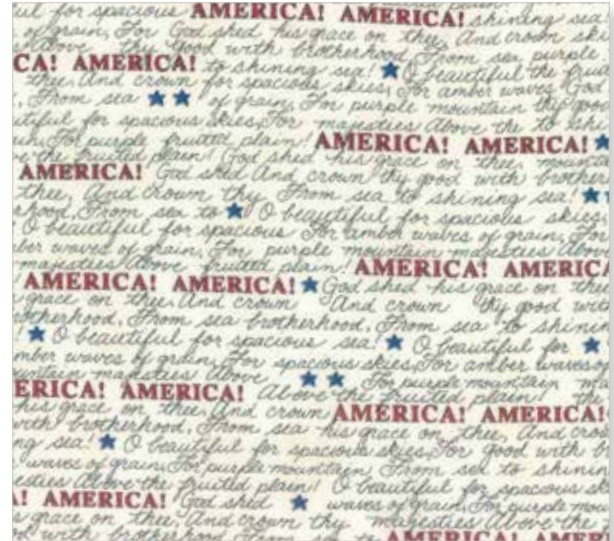 ul for spacious AMERICA! AMERICA! shining sea
of grain, For God shed his grace on thee, And crown
above thy good with brotherhood, From sea purple
CA! AMERICA! to shining sea! ★ O beautiful the frui
thee, And crown for spacious skies, For amber waves God
From sea ★★ of grain, For purple mountain thy good
utiful for spacious skies, For majesties Above the to shi
For purple fruited plain! AMERICA! AMERICA! ★
the fruited plain! God shed his grace on thee mounta
AMERICA! God shed And crown thy good with brother
thee, And crown thy From sea to shining sea! ★
rhood, From sea to ★ O beautiful for spacious skies
O beautiful for spacious For amber waves of grain, For
ber waves of grain, For purple mountain majesties Abov
majesties Above fruited plain! AMERICA! AMERICA
AMERICA! AMERICA! ★ God shed his grace on thee
grace on thee, And crown And crown thy good wit
rotherhood, From sea brotherhood, From sea to shinin
! ★ O beautiful for spacious sea! ★ O beautiful for ★
mber waves of grain, For spacious skies, For amber waves o
untain majesties Above ★★ For purple mountain ma
ERICA! AMERICA! Above the fruited plain! the
his grace on thee, And crown AMERICA! AMERICA!
with brotherhood, From sea his grace on thee, And crow
ng sea! ★ O beautiful for spacious skies, For good with b
waves of grain, For purple mountain, From sea to shinin
esties Above the fruited plain! O beautiful for spacious sk
A! AMERICA! God shed ★ waves of grain, For purple mou
s grace on thee, And crown thy majesties Above the
od with brotherhood From sea to AMERICA! AMER